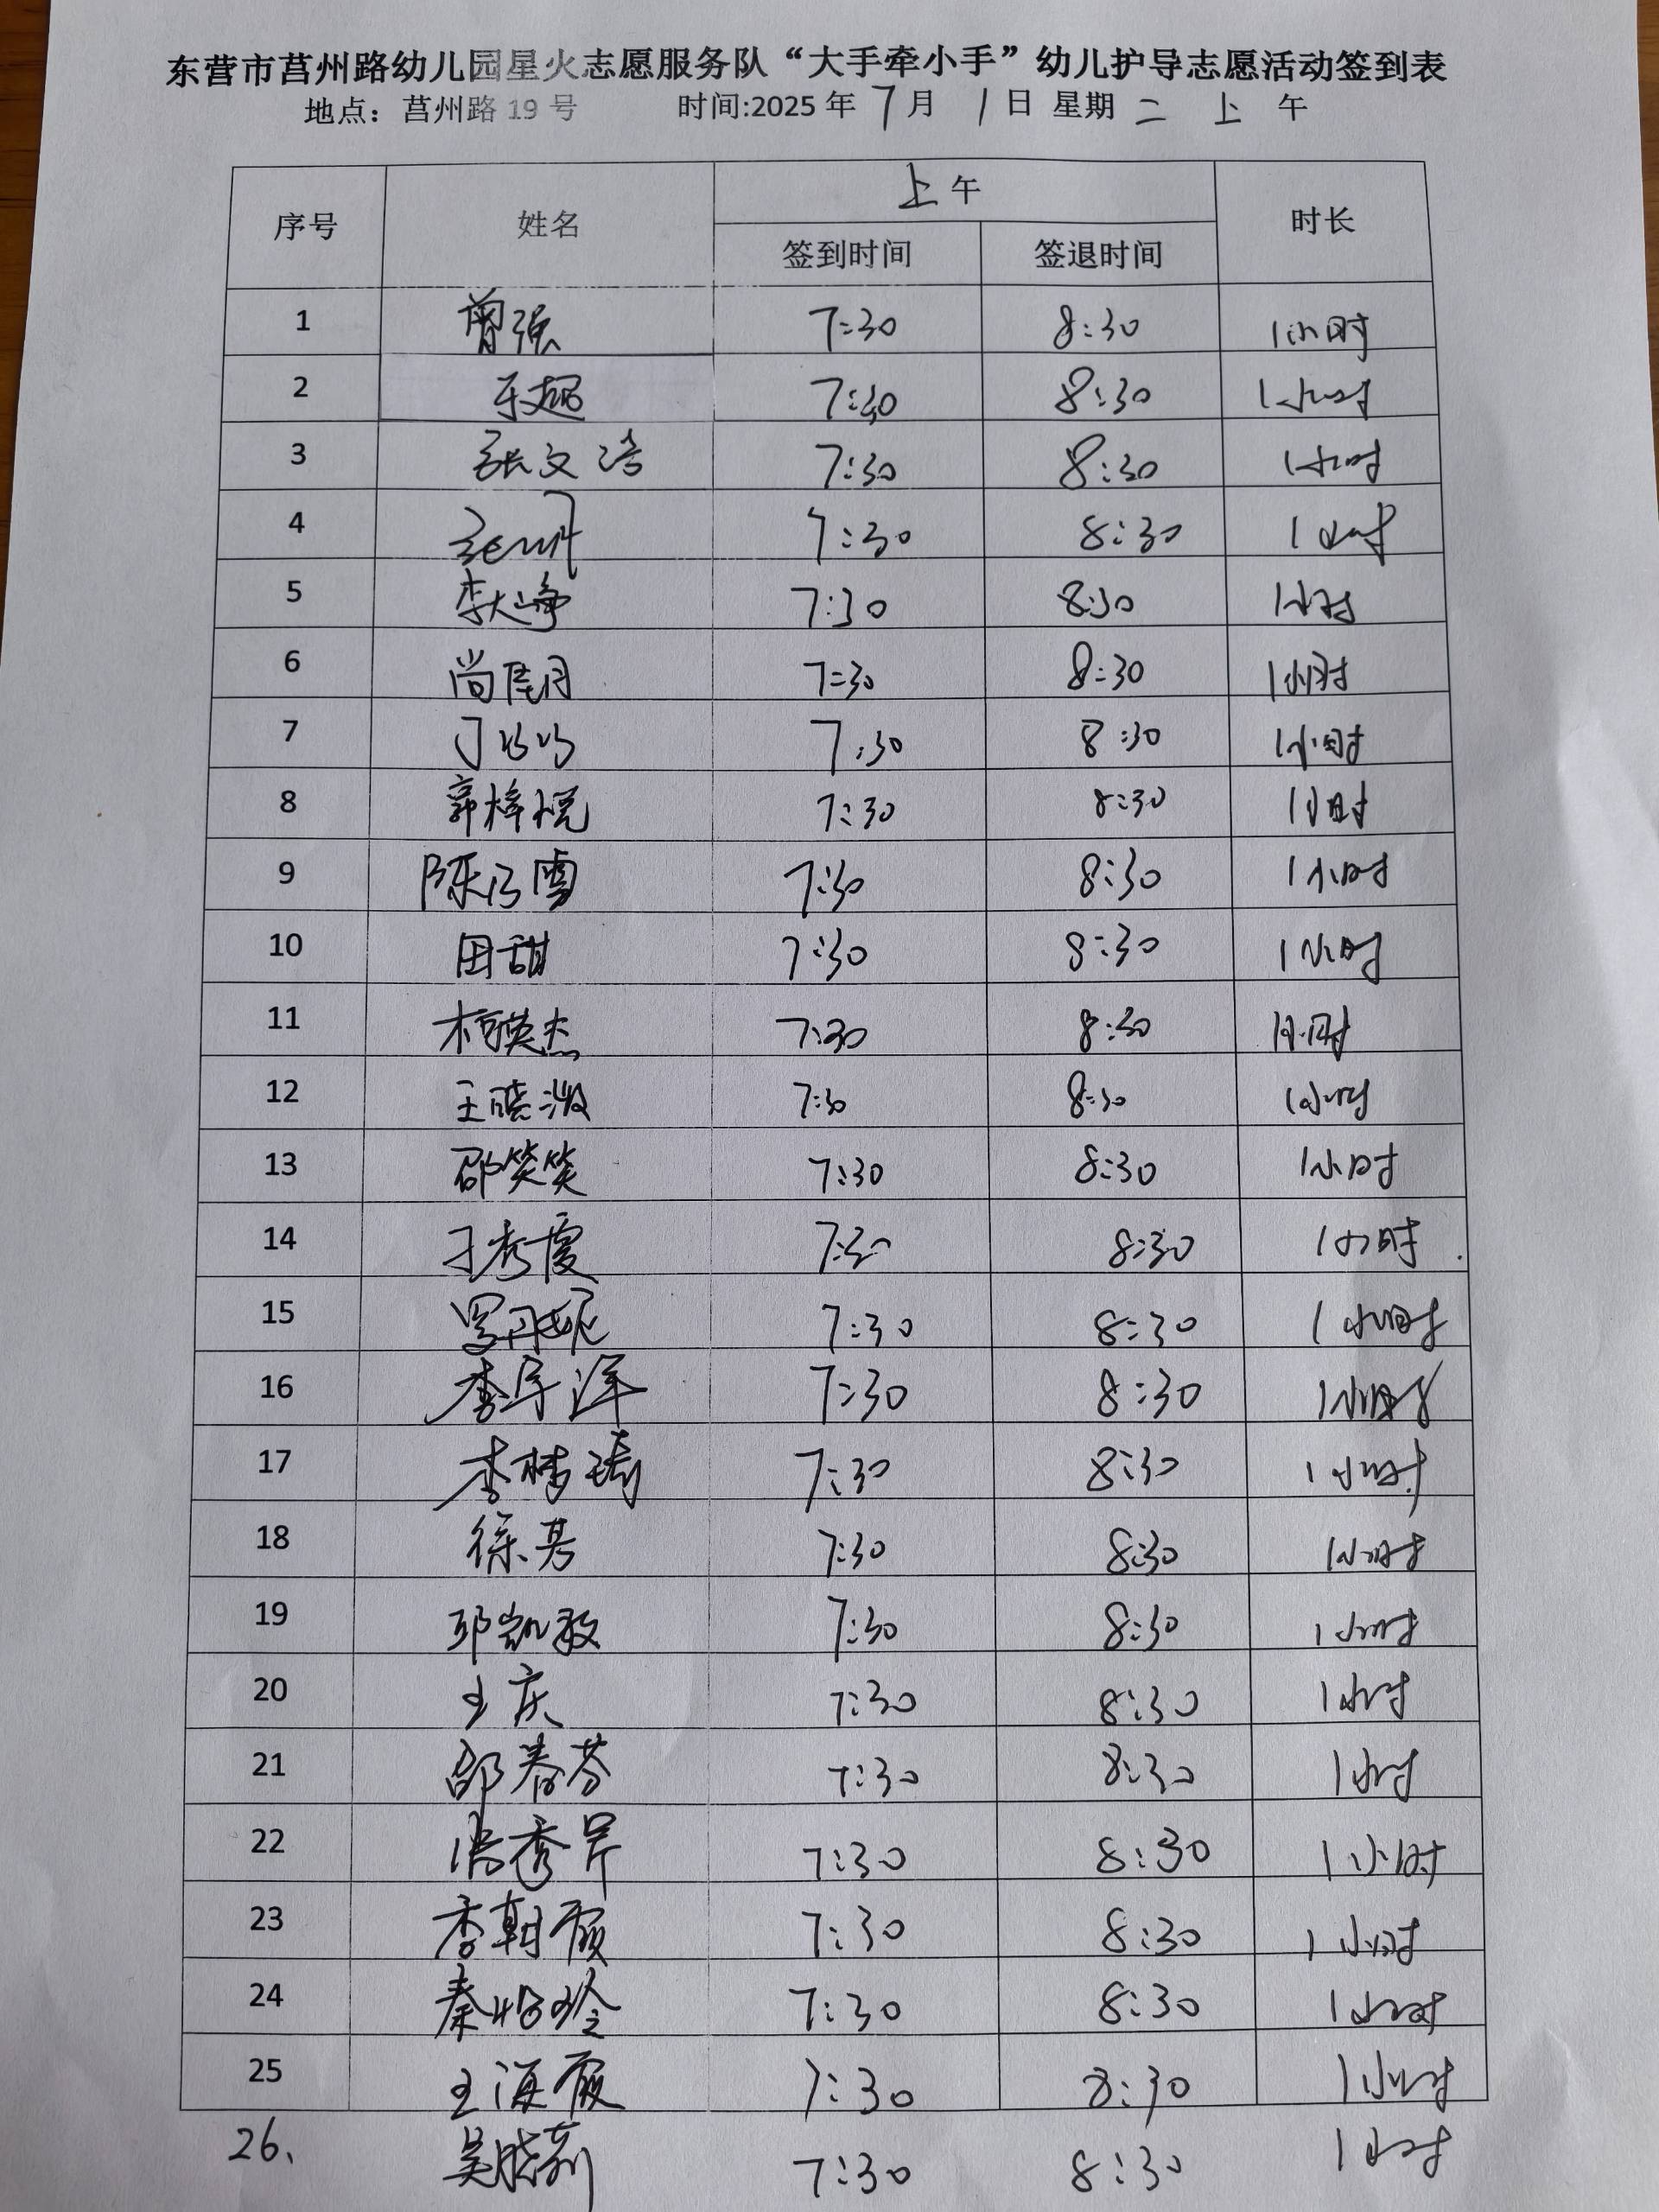 东营市莒州路幼儿园星火志愿服务队“大手牵小手”幼儿护导志愿活动签到表
地点：莒州路 19 号 时间:2025 年 7 月 1 日 星期 二 上 午
序号 姓名 上午 时长
签到时间 签退时间
1 曾强 7:30 8:30 1小时
2 7:30 8:30 1小时
3 张文浩 7:30 8:30 1小时
4 7:30 8:30 1小时
5 李大峥 7:30 8:30 1小时
6 尚佳月 7:30 8:30 1小时
7 7:30 8:30 1小时
8 郭梓悦 7:30 8:30 1小时
9 陈乃雪 7:30 8:30 1小时
10 田甜 7:30 8:30 1小时
11 柯英杰 7:30 8:30 1小时
12 王晓 7:30 8:30 1小时
13 邵笑笑 7:30 8:30 1小时
14 7:30 8:30 1小时
15 罗丹妮 7:30 8:30 1小时
16 李宇洋 7:30 8:30 1小时
17 李梦琦 7:30 8:30 1小时
18 徐芳 7:30 8:30 1小时
19 邱凯 7:30 8:30 1小时
20 王庆 7:30 8:30 1小时
21 邵春芬 7:30 8:30 1小时
22 秀芹 7:30 8:30 1小时
23 李朝霞 7:30 8:30 1小时
24 秦 玲 7:30 8:30 1小时
25 王海霞 7:30 8:30 1小时
26、 吴晓莉 7:30 8:30 1小时